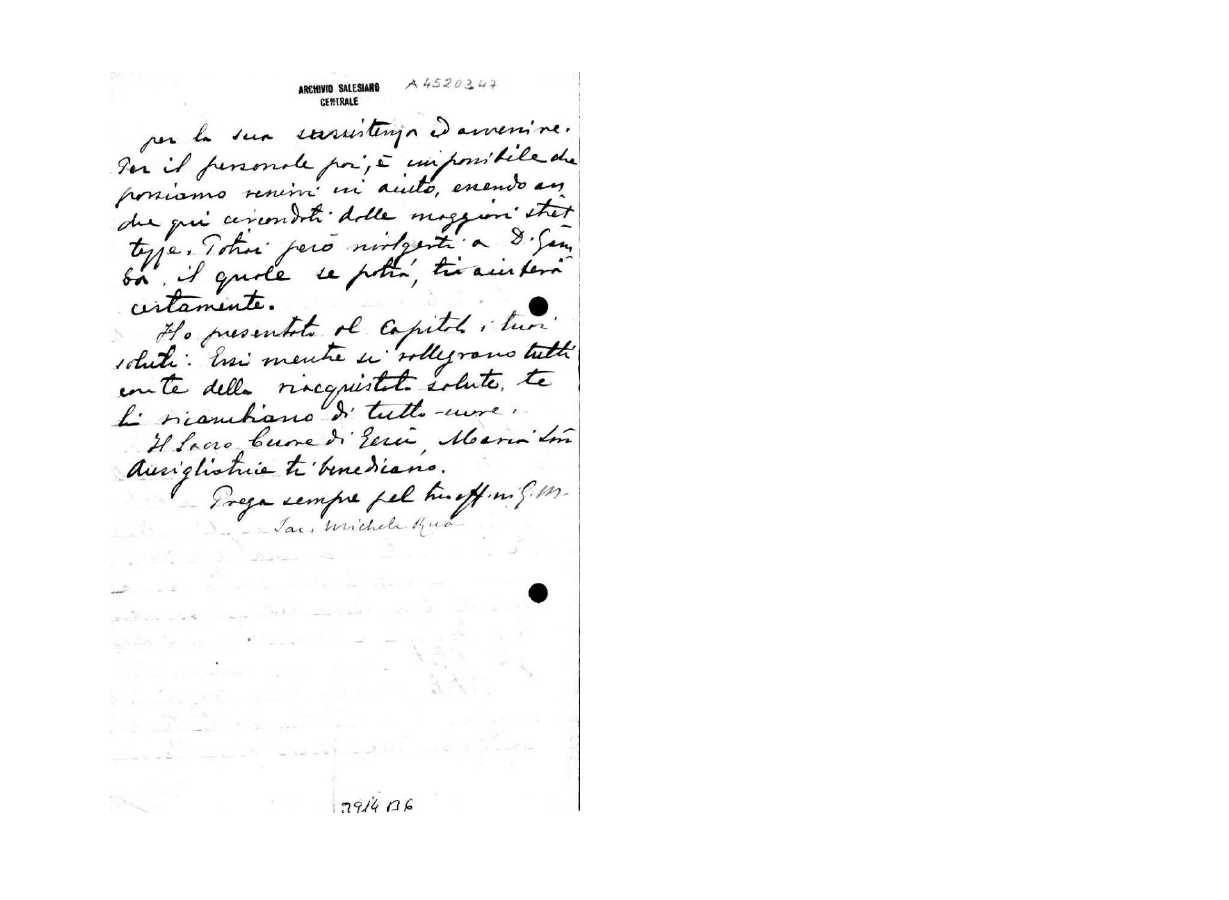 ARCHIVIO SALESIANO
CENTRALE
A4520347
per la sua sussistenza ed avvenire.
Per il personale poi, è impossibile che
possiamo venirvi in aiuto, essendo an
che qui circondati dalle maggiori stret
tezze. Potrai però rivolgerti a D. Gam
ba, il quale se potrà, ti aiuterà
certamente.
Ho presentato al Capitolo i tuoi
saluti. Essi mentre si rallegrano tutti
con te della riacquistata salute, te
li ricambiano di tutto cuore.
Il Sacro Cuore di Gesù, Maria SS.
Ausigliatrice ti benedicano.
Prega sempre pel tuo aff. in G. M.
Sac. Michele Rua
3914 B6